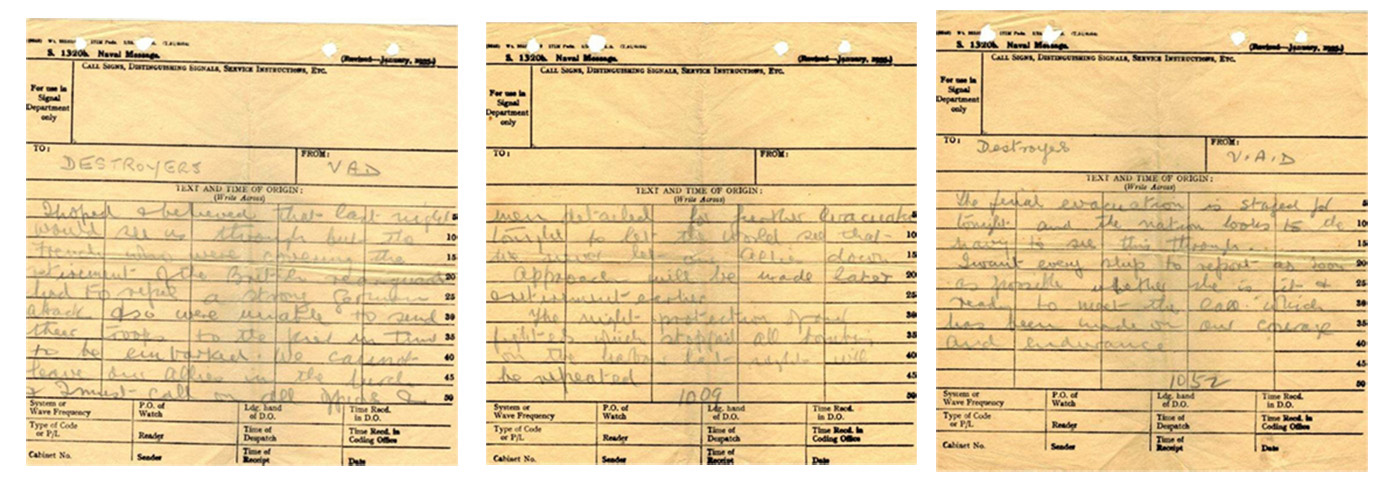 S. 1320b. Naval Message.
(Revised—January, 1935.)
CALL SIGNS, DISTINGUISHING SIGNALS, SERVICE INSTRUCTIONS, ETC.
For use in
Signal
Department
only
TO: DESTROYERS
FROM: VAD
TEXT AND TIME OF ORIGIN:
(Write Across)
I hoped & believed that last night 5
would see us through but the 10
French who were covering the 15
retirement of the British rearguard 20
had to repel a strong German 25
attack & so were unable to send 30
their troops to the piers in time 35
to be embarked. We cannot 40
leave our allies in the lurch 45
& I must call on all 50
System or
Wave Frequency
P.O. of
Watch
Ldg. hand
of D.O.
Time Recd.
in D.O.
Type of Code
or P/L
Reader
Time of
Despatch
Time Recd. in
Coding Office
Cabinet No.
Sender
Time of
Receipt
Date
S. 1320b. Naval Message.
(Revised—January, 1935.)
CALL SIGNS, DISTINGUISHING SIGNALS, SERVICE INSTRUCTIONS, ETC.
For use in
Signal
Department
only
TO:
FROM:
TEXT AND TIME OF ORIGIN:
(Write Across)
men detailed for further evacuation 5
tonight to let the world see that 10
we never let our Allies down 15
Approach will be made later 20
& retirement earlier 25
The night protection 30
which stopped all bombing 35
on the harbour last night will 40
be repeated 45
1009 50
System or
Wave Frequency
P.O. of
Watch
Ldg. hand
of D.O.
Time Recd.
in D.O.
Type of Code
or P/L
Reader
Time of
Despatch
Time Recd. in
Coding Office
Cabinet No.
Sender
Time of
Receipt
Date
S. 1320b. Naval Message.
(Revised—January, 1935.)
CALL SIGNS, DISTINGUISHING SIGNALS, SERVICE INSTRUCTIONS, ETC.
For use in
Signal
Department
only
TO: Destroyers
FROM: V.A.D
TEXT AND TIME OF ORIGIN:
(Write Across)
The final evacuation is staged for 5
tonight and the nation looks to the 10
navy to see this through. 15
I want every ship to report as soon 20
as possible whether she is fit & 25
ready to meet the call which 30
has been made on our courage 35
and endurance 40
45
1052 50
System or
Wave Frequency
P.O. of
Watch
Ldg. hand
of D.O.
Time Recd.
in D.O.
Type of Code
or P/L
Reader
Time of
Despatch
Time Recd. in
Coding Office
Cabinet No.
Sender
Time of
Receipt
Date